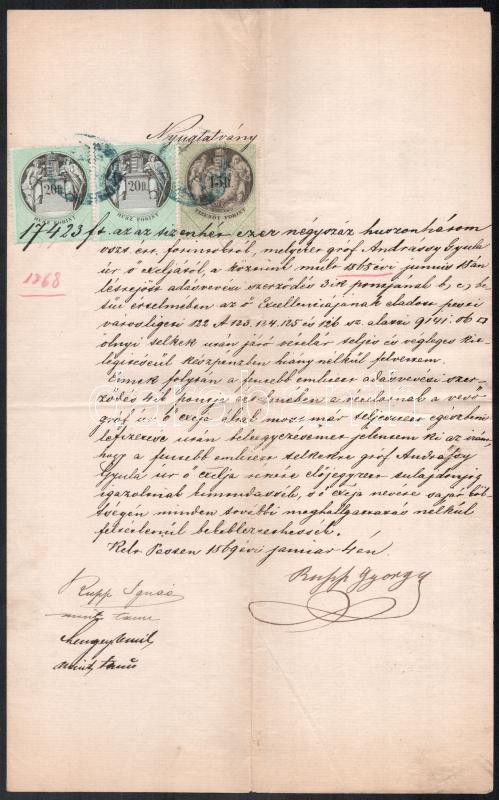 Nyugtatvány
20ft. 20ft. 15ft
HUSZ FORINT HUSZ FORINT TIZENÖT FORINT
17423 ft. azaz tizenhét ezer négyszáz huszonhárom
oszt. ért. forintokról, melyeket gróf Andrássy Gyula
úr ő exljától, a köztünk mult 1868 évi junius 18án
1868
létrejött adásvevési szerződés 3ik pontjának b, c, be-
tűi értelmében az ő Excellentiájának eladott pesti
városligeti 122 A 123. 124. 125 és 126 sz. alatti 9141.06 □
ölnyi telkek után járó vételár teljes és végleges ki-
elégitéseül készpénzben hiány nélkül felvettem.
Ennek folytán a fentebb emlitett adásvevési szer-
ződés 4ik pontja értelmében a vételárnak a vevő
gróf úr ő exlja által most már teljesen egészbeni
lefizetése után beleegyezésemet jelentem ki az iránt
hogy a fentebb emlitett telkekre gróf Andrássy
Gyula úr ő exlja részére előjegyzett tulajdonjog
igazoltnak kimondassék, s ő exlja nevére saját költ-
ségén minden további meghallgatásom nélkül
feltétlenül bekebeleztethessék.
Kelt Pesten 1869 évi január 4én.
Rupp György
Rupp Ignác
mint tanu
Lengyel Emil
mint tanu